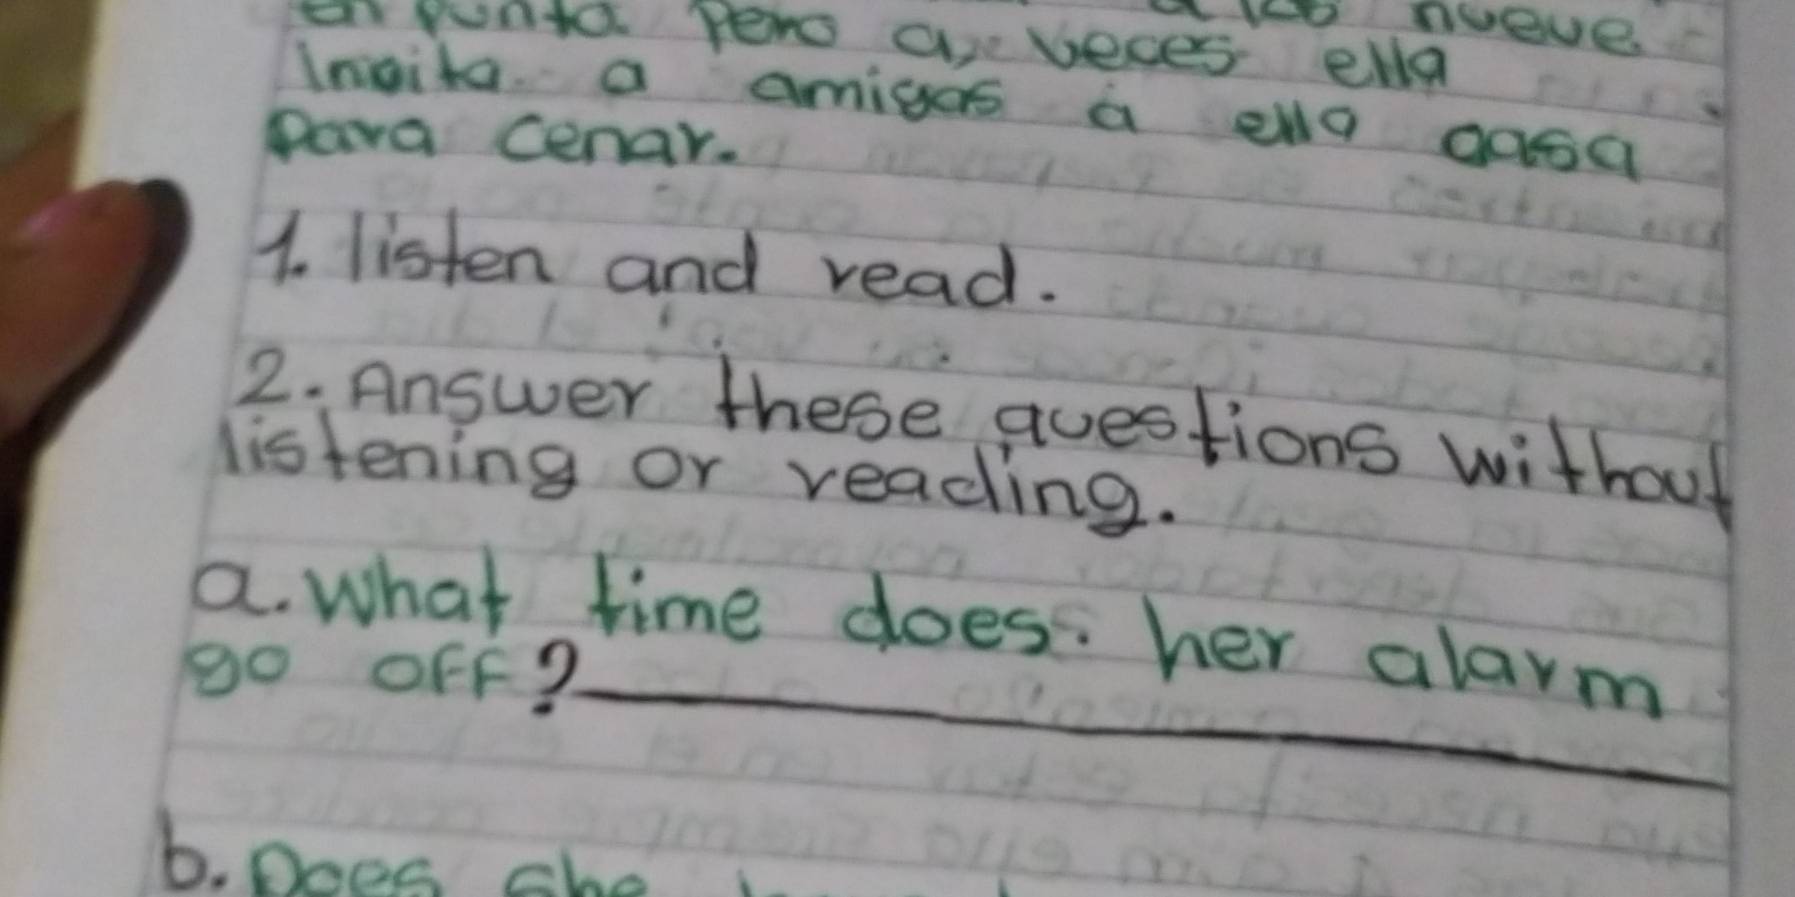 en punta Pero a veces ella a las nueve
Invita a amigas a ella casa
Para cenar.
1. listen and read.
2. Answer these questions without
listening or reading.
a. What time does. her alarm
go off?
b. Does she